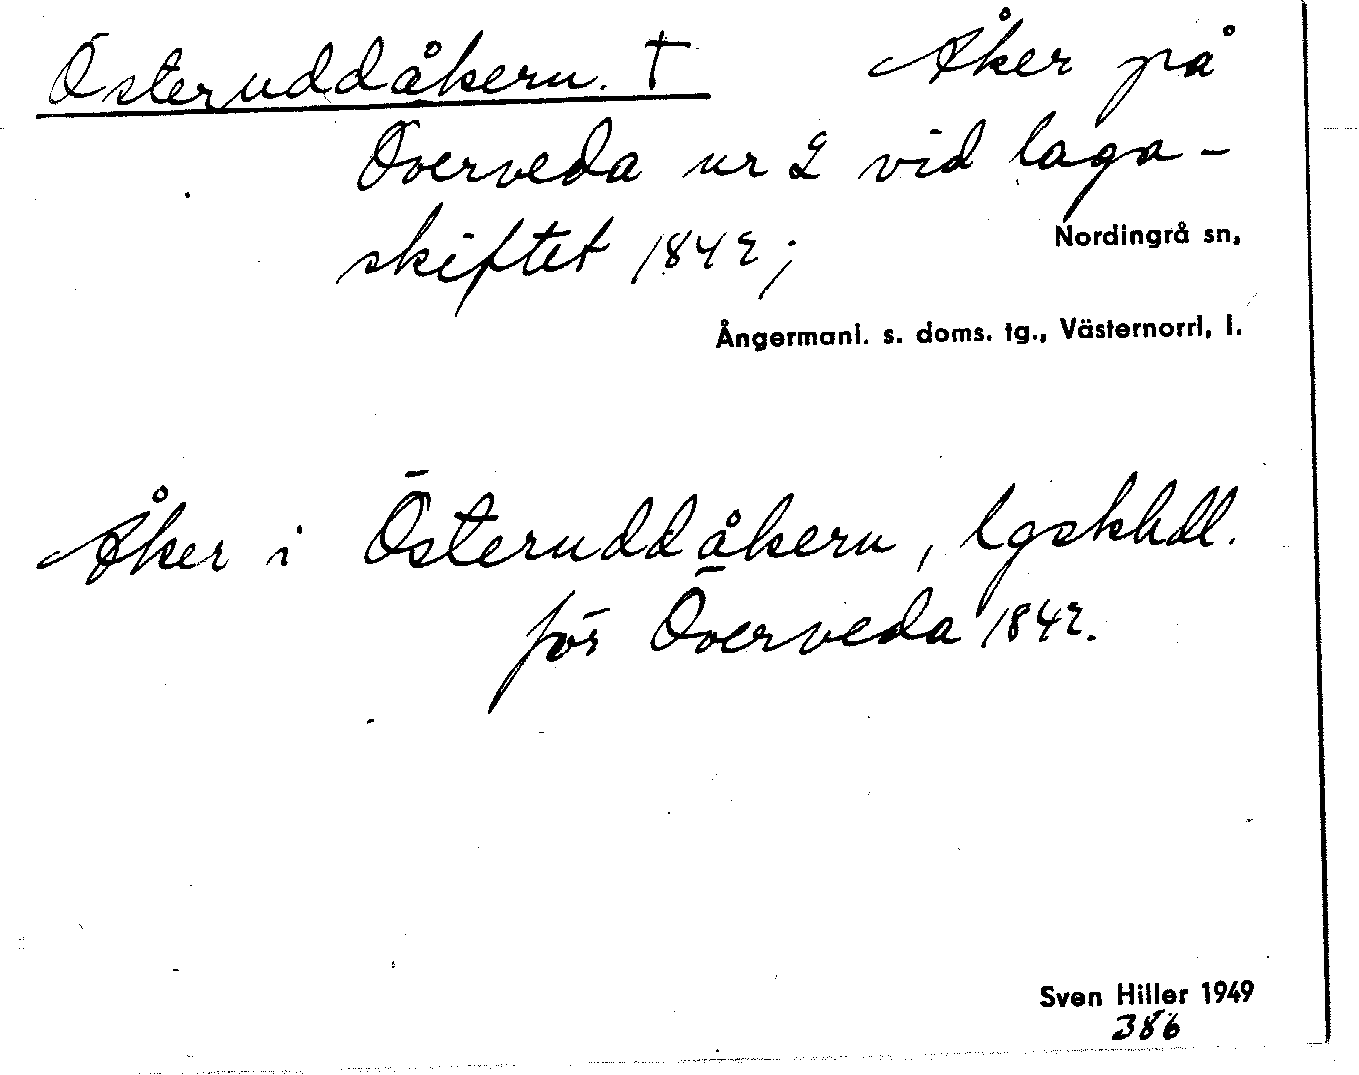 Österuddåkern. † Åker på
Överveda nr 2 vid laga-
skiftet 1842;
Nordingrå sn,
Ångermanl. s. doms. tg., Västernorrl. l.
Åker i Österuddåkern, lgskhdl.
för Överveda 1842.
Sven Hiller 1949
386